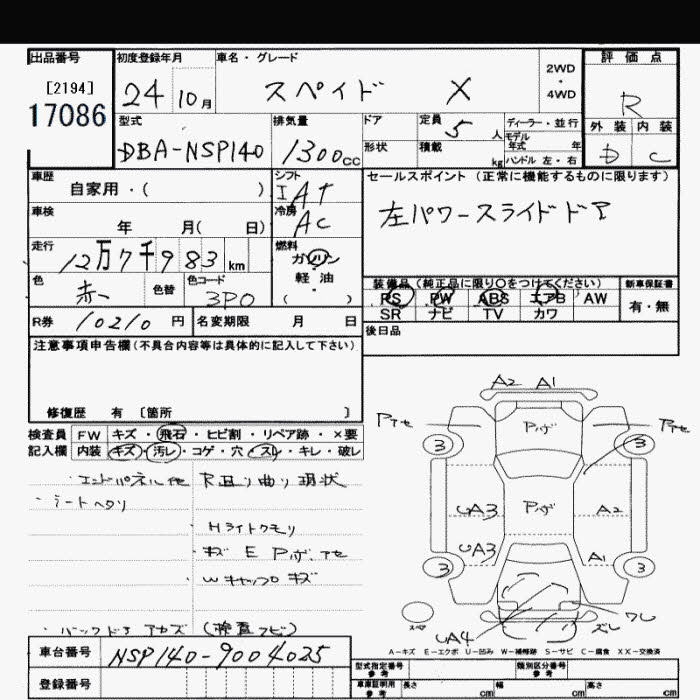 出品番号
[2194]
17086
初度登録年月
24 10月
車名・グレード
スペイド X
2WD
・
4WD
評価点
R
型式
DBA-NSP140
排気量
1300cc
ドア
形状
定員
5人
積載
kg
ディーラー・並行
モデル
年式 年
ハンドル 左・右
外装 内装
D C
車歴
自家用・( )
シフト
IAT
車検
年 月( 日)
冷房
AC
セールスポイント (正常に機能するものに限ります)
左パワースライドドア
走行
12万7千983km
燃料
ガソリン
・
軽油
( )
色
赤
色替
色コード
3P0
装備品(純正品に限り○をつけてください)
PS PW ABS エアB AW
SR ナビ TV カワ
新車保証書
有・無
R券
10210円
名変期限 月 日
後日品
注意事項申告欄(不具合内容等は具体的に記入して下さい)
修復歴 有 〔箇所 〕
検査員
記入欄
FW キズ・飛石・ヒビ割・リペア跡・×要
内装 キズ・汚レ・コゲ・穴・スレ・キレ・破レ
・エンドパネル他 R且り曲り現状
・シートヘタリ
・Hライトクモリ
・キズ E Pハゲ、アセ
・Wキャップ キズ
・バックドア アカズ (検査)
A2 A1
Pアセ
Pアセ
Pハゲ
3
3
UA3
Pハゲ
A2
UA3
A1
3
3
スペア
UA4
ワレ
ズレ
A-キズ E-エクボ U-凹み W-補修跡 S-サビ C-腐食 XX-交換済
車台番号
NSP140-9004025
登録番号
型式指定番号
参考
類別区分番号
参考
車庫証明用
参考
長さ cm
幅 cm
高さ cm